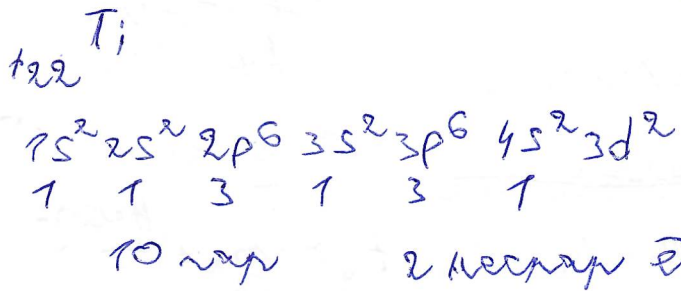 +22 Ti
1s² 2s² 2p⁶ 3s² 3p⁶ 4s² 3d²
1 1 3 1 3 1
10 пар 2 неспар ē